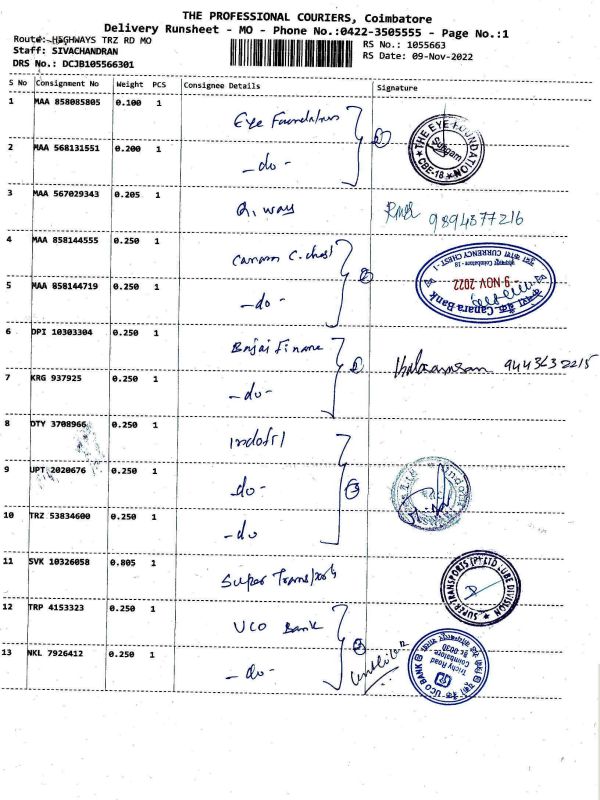 THE PROFESSIONAL COURIERS, Coimbatore
Delivery Runsheet - MO - Phone No.:0422-3505555 - Page No.:1
Route: HIGHWAYS TRZ RD MO
RS No.: 1055663
Staff: SIVACHANDRAN
RS Date: 09-Nov-2022
DRS No.: DCJB105566301
S No Consignment No Weight PCS Consignee Details Signature
1 MAA 858085805 0.100 1 Eye Foundation
THE EYE FOUNDATION CBE-18
2 MAA 568131551 0.200 1 -do-
3 MAA 567029343 0.205 1 R. way 9894377216
4 MAA 858144555 0.250 1 Canara C. chest
CURRENCY CHEST - 1
9 NOV 2022
Canara Bank
5 MAA 858144719 0.250 1 -do-
6 DPI 10303304 0.250 1 Bajaj Finance
9443632215
7 KRG 937925 0.250 1 -do-
8 DTY 3708966 0.250 1 Indofil
9 UPT 2020676 0.250 1 do-
10 TRZ 53834600 0.250 1 -do
11 SVK 10326058 0.805 1 Super Transports
SUPER TRANSPORTS (P) LTD LUBE DIVISION
12 TRP 4153323 0.250 1 UCO Bank
13 NKL 7926412 0.250 1 -do-
UCO BANK
Trichy Road
Coimbatore